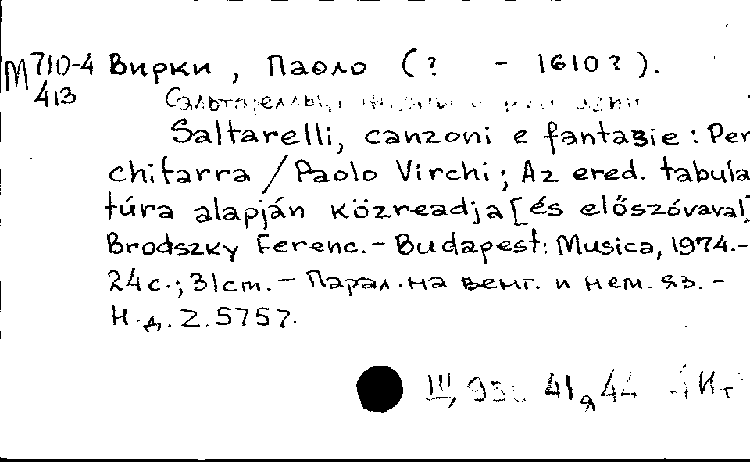 М 710-4 Вирки, Паоло (? - 1610?).
413
Saltarelli, canzoni e fantazie: Per
chitarra / Paolo Virchi; Az ered. tabula
túra alapján közreadja [és előszóvaval]
Brodszky Ferenc. - Budapest: Musica, 1974. -
24c.; 31cm. - Парал. на венг. и нем. яз. -
Н.д. Z.5757.
III, 93 41я44